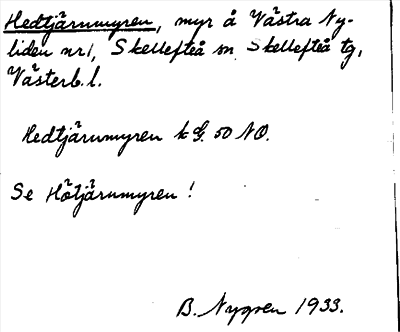 Hedtjärnmyren, myr å Västra Ny-
liden nr 1, Skellefteå sn Skellefteå tg,
Västerb. l.
Hedtjärnmyren k G. 50 NO.
Se Hötjärnmyren!
B. Nygren 1933.